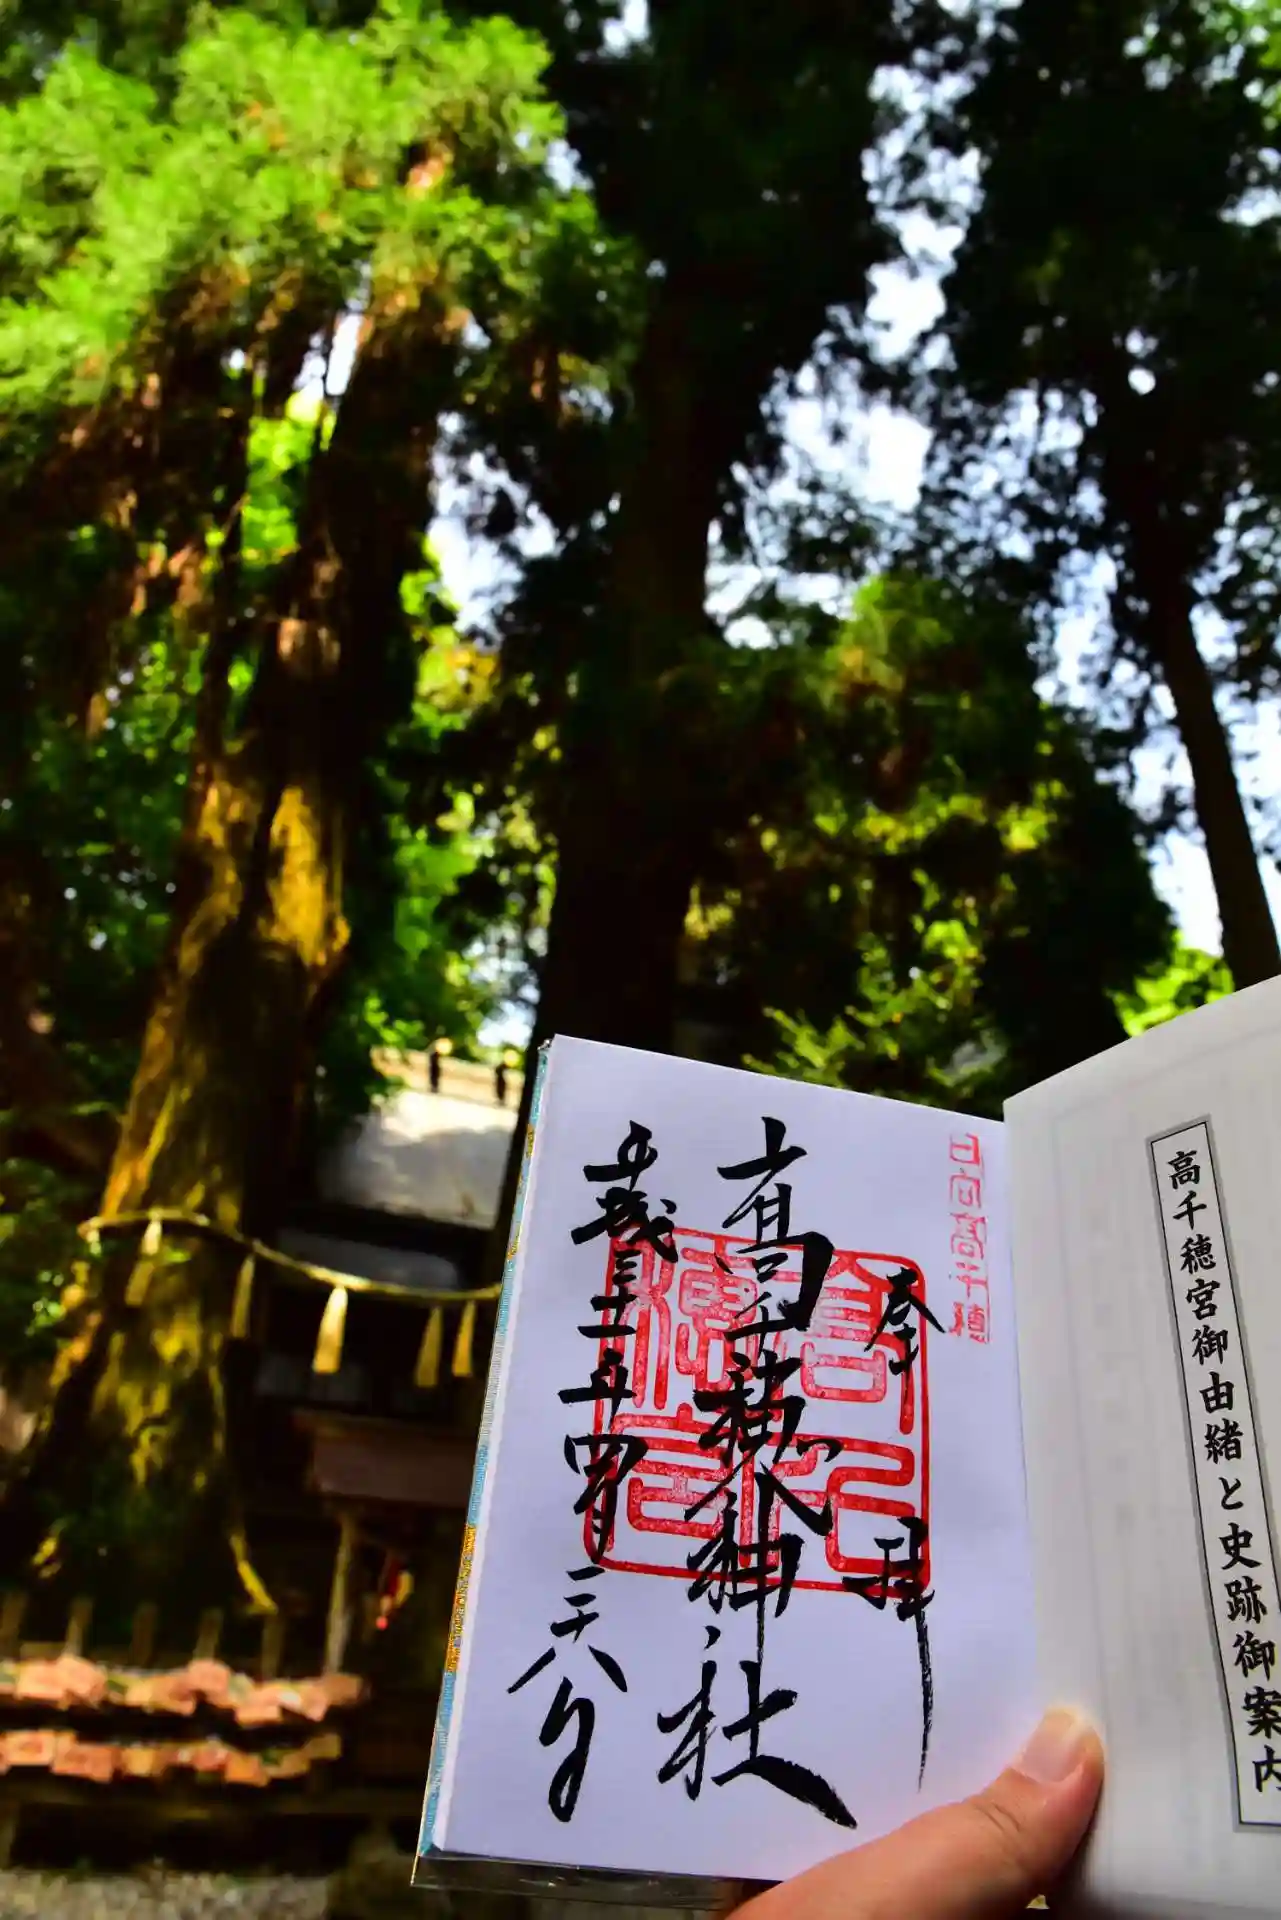 高千穂宮御由緒と史跡御案内
日向高千穂
奉拝
高千穂神社
平成三十一年四月二十八日